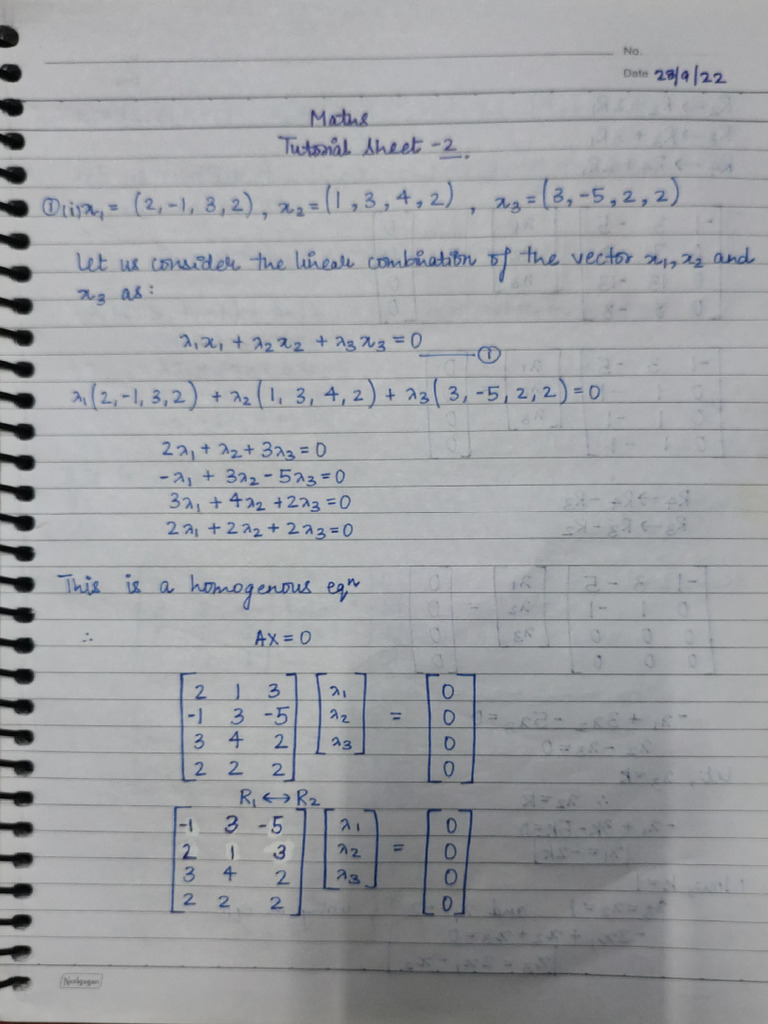 No.
Date 23/9/22
Maths
Tutorial Sheet -2.
①(i) x₁ = (2, -1, 3, 2), x₂ = (1, 3, 4, 2), x₃ = (3, -5, 2, 2)
Let us consider the linear combination of the vector x₁, x₂ and
x₃ as:
λ₁x₁ + λ₂x₂ + λ₃x₃ = 0 —①
λ₁(2, -1, 3, 2) + λ₂(1, 3, 4, 2) + λ₃(3, -5, 2, 2) = 0
2λ₁ + λ₂ + 3λ₃ = 0
-λ₁ + 3λ₂ - 5λ₃ = 0
3λ₁ + 4λ₂ + 2λ₃ = 0
2λ₁ + 2λ₂ + 2λ₃ = 0
This is a homogenous eqn
∴ AX = 0
2 1 3 λ₁ 0
-1 3 -5 λ₂ = 0
3 4 2 λ₃ 0
2 2 2 0
R₁ ↔ R₂
-1 3 -5 λ₁ 0
2 1 3 λ₂ = 0
3 4 2 λ₃ 0
2 2 2 0